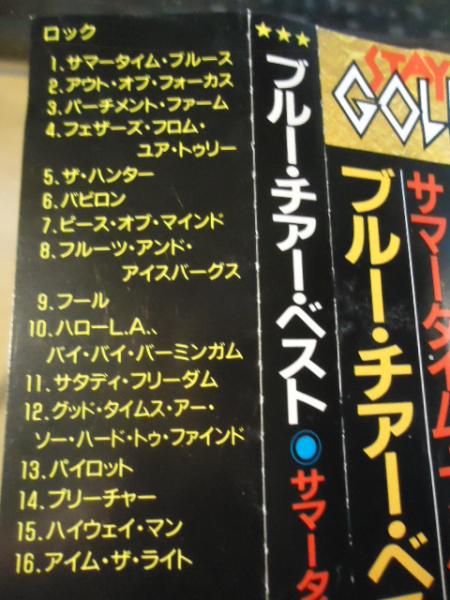 ロック
1.サマータイム・ブルース
2.アウト・オブ・フォーカス
3.パーチメント・ファーム
4.フェザーズ・フロム・
ユア・トゥリー
5.ザ・ハンター
6.バビロン
7.ピース・オブ・マインド
8.フルーツ・アンド・
アイスバーグス
9.フール
10.ハローL.A.、
バイ・バイ・バーミンガム
11.サタディ・フリーダム
12.グッド・タイムス・アー・
ソー・ハード・トゥ・ファインド
13.パイロット
14.プリーチャー
15.ハイウェイ・マン
16.アイム・ザ・ライト
★★★
ブルー・チアー・ベスト
サマータ
STAY
GOL
ブルー・チアー・ベ
サマータイム